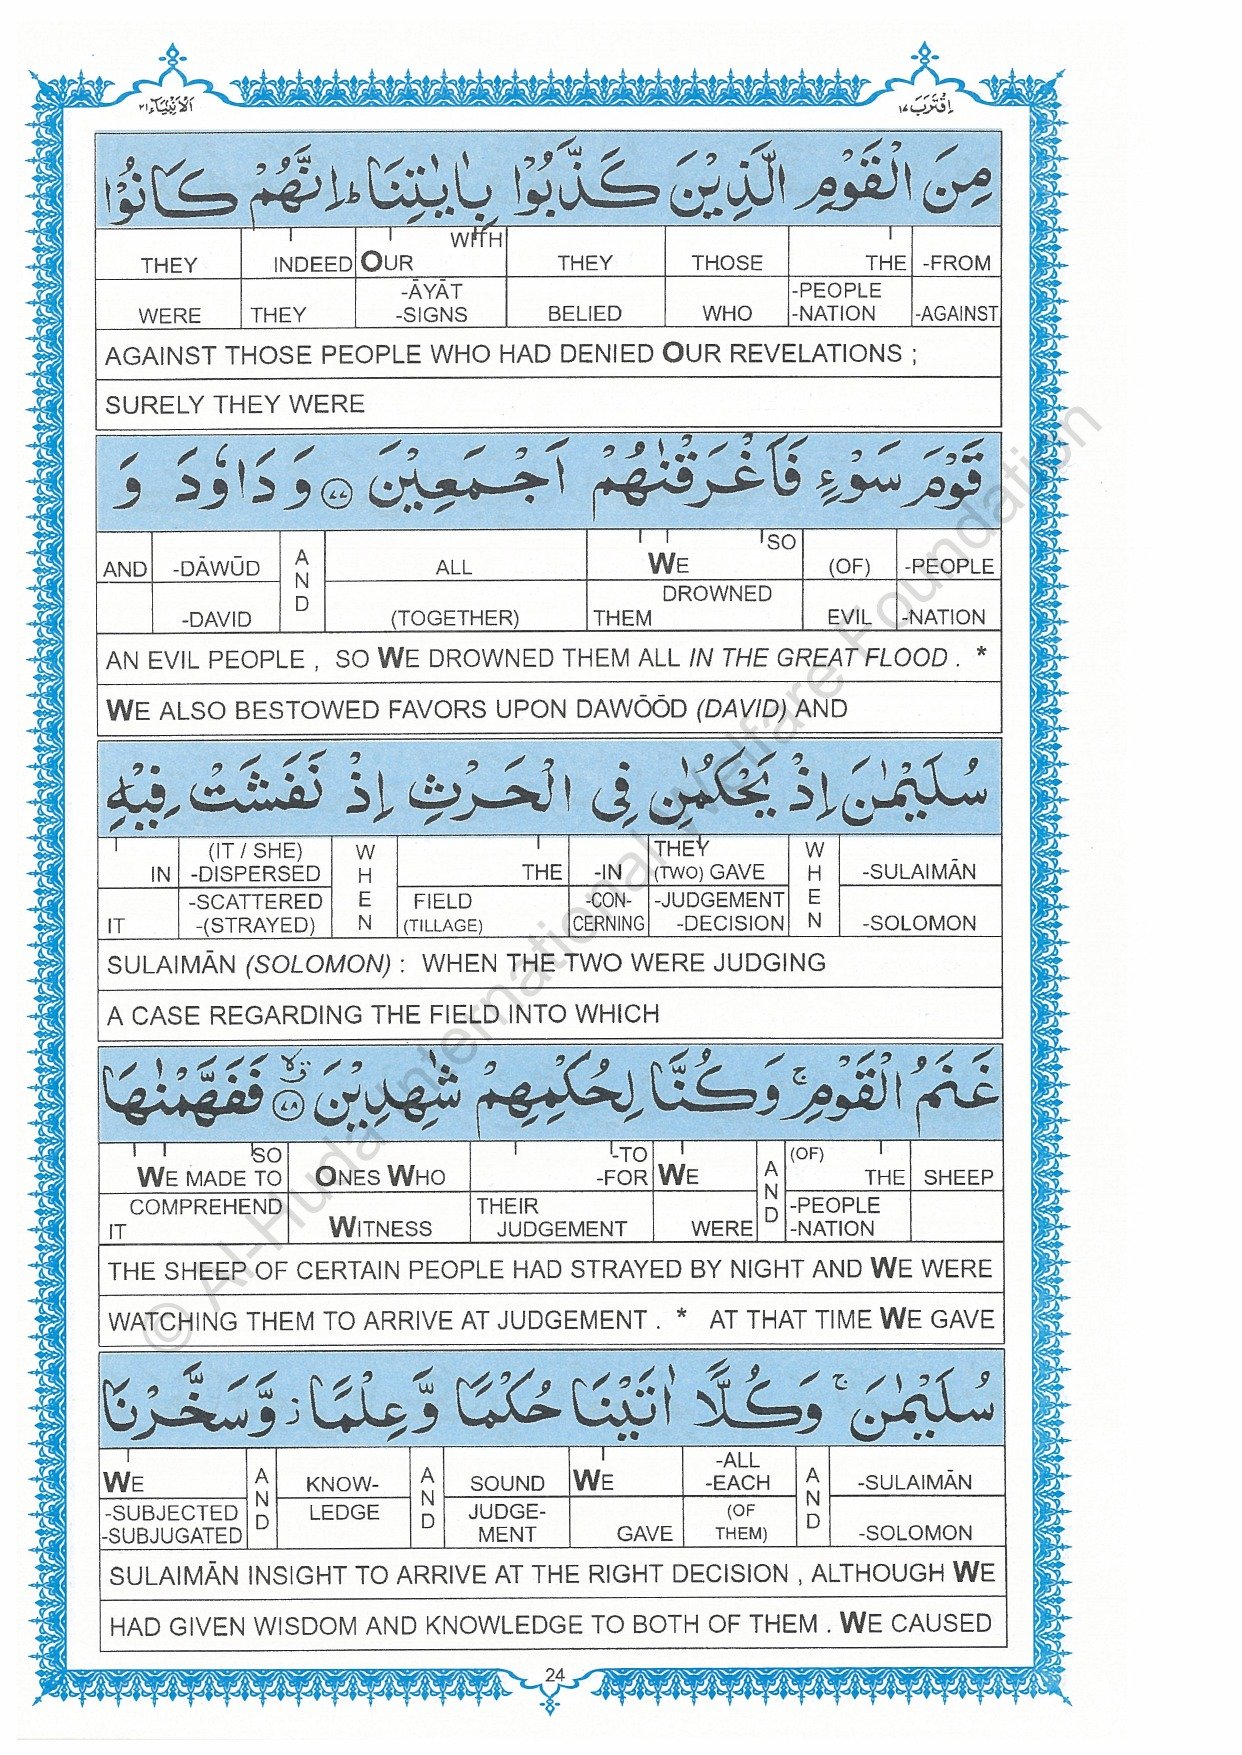 الأنبياء ٢١
اقترب ١٧
مِنَ الْقَوْمِ الَّذِيْنَ كَذَّبُوْا بِاٰيٰتِنَا ؕ اِنَّهُمْ كَانُوْا
THEY INDEED OUR WITH THEY THOSE THE -FROM
WERE THEY -ĀYĀT -SIGNS BELIED WHO -PEOPLE -NATION -AGAINST
AGAINST THOSE PEOPLE WHO HAD DENIED OUR REVELATIONS ;
SURELY THEY WERE
قَوْمَ سَوْءٍ فَاَغْرَقْنٰهُمْ اَجْمَعِيْنَ ﴿٧٧﴾ وَ دَاوٗدَ وَ
AND -DĀWŪD AND ALL WE SO (OF) -PEOPLE
-DAVID (TOGETHER) THEM DROWNED EVIL -NATION
AN EVIL PEOPLE , SO WE DROWNED THEM ALL IN THE GREAT FLOOD . *
WE ALSO BESTOWED FAVORS UPON DAWŌŌD (DAVID) AND
سُلَيْمٰنَ اِذْ يَحْكُمٰنِ فِي الْحَرْثِ اِذْ نَفَشَتْ فِيْهِ
IN (IT / SHE) -DISPERSED WHEN THE -IN THEY (TWO) GAVE WHEN -SULAIMĀN
IT -SCATTERED -(STRAYED) FIELD (TILLAGE) -CON- CERNING -JUDGEMENT -DECISION -SOLOMON
SULAIMĀN (SOLOMON) : WHEN THE TWO WERE JUDGING
A CASE REGARDING THE FIELD INTO WHICH
غَنَمُ الْقَوْمِ ۚ وَ كُنَّا لِحُكْمِهِمْ شٰهِدِيْنَ ﴿٧٨﴾ فَفَهَّمْنٰهَا
SO WE MADE TO ONES WHO -TO -FOR WE AND (OF) THE SHEEP
COMPREHEND IT WITNESS THEIR JUDGEMENT WERE -PEOPLE -NATION
THE SHEEP OF CERTAIN PEOPLE HAD STRAYED BY NIGHT AND WE WERE
WATCHING THEM TO ARRIVE AT JUDGEMENT . * AT THAT TIME WE GAVE
سُلَيْمٰنَ ۚ وَ كُلًّا اٰتَيْنَا حُكْمًا وَّ عِلْمًا ؗ وَّ سَخَّرْنَا
WE AND KNOW- AND SOUND WE -ALL -EACH AND -SULAIMĀN
-SUBJECTED -SUBJUGATED LEDGE JUDGE- MENT GAVE (OF THEM) -SOLOMON
SULAIMĀN INSIGHT TO ARRIVE AT THE RIGHT DECISION , ALTHOUGH WE
HAD GIVEN WISDOM AND KNOWLEDGE TO BOTH OF THEM . WE CAUSED
24
© Al-Huda International Welfare Foundation